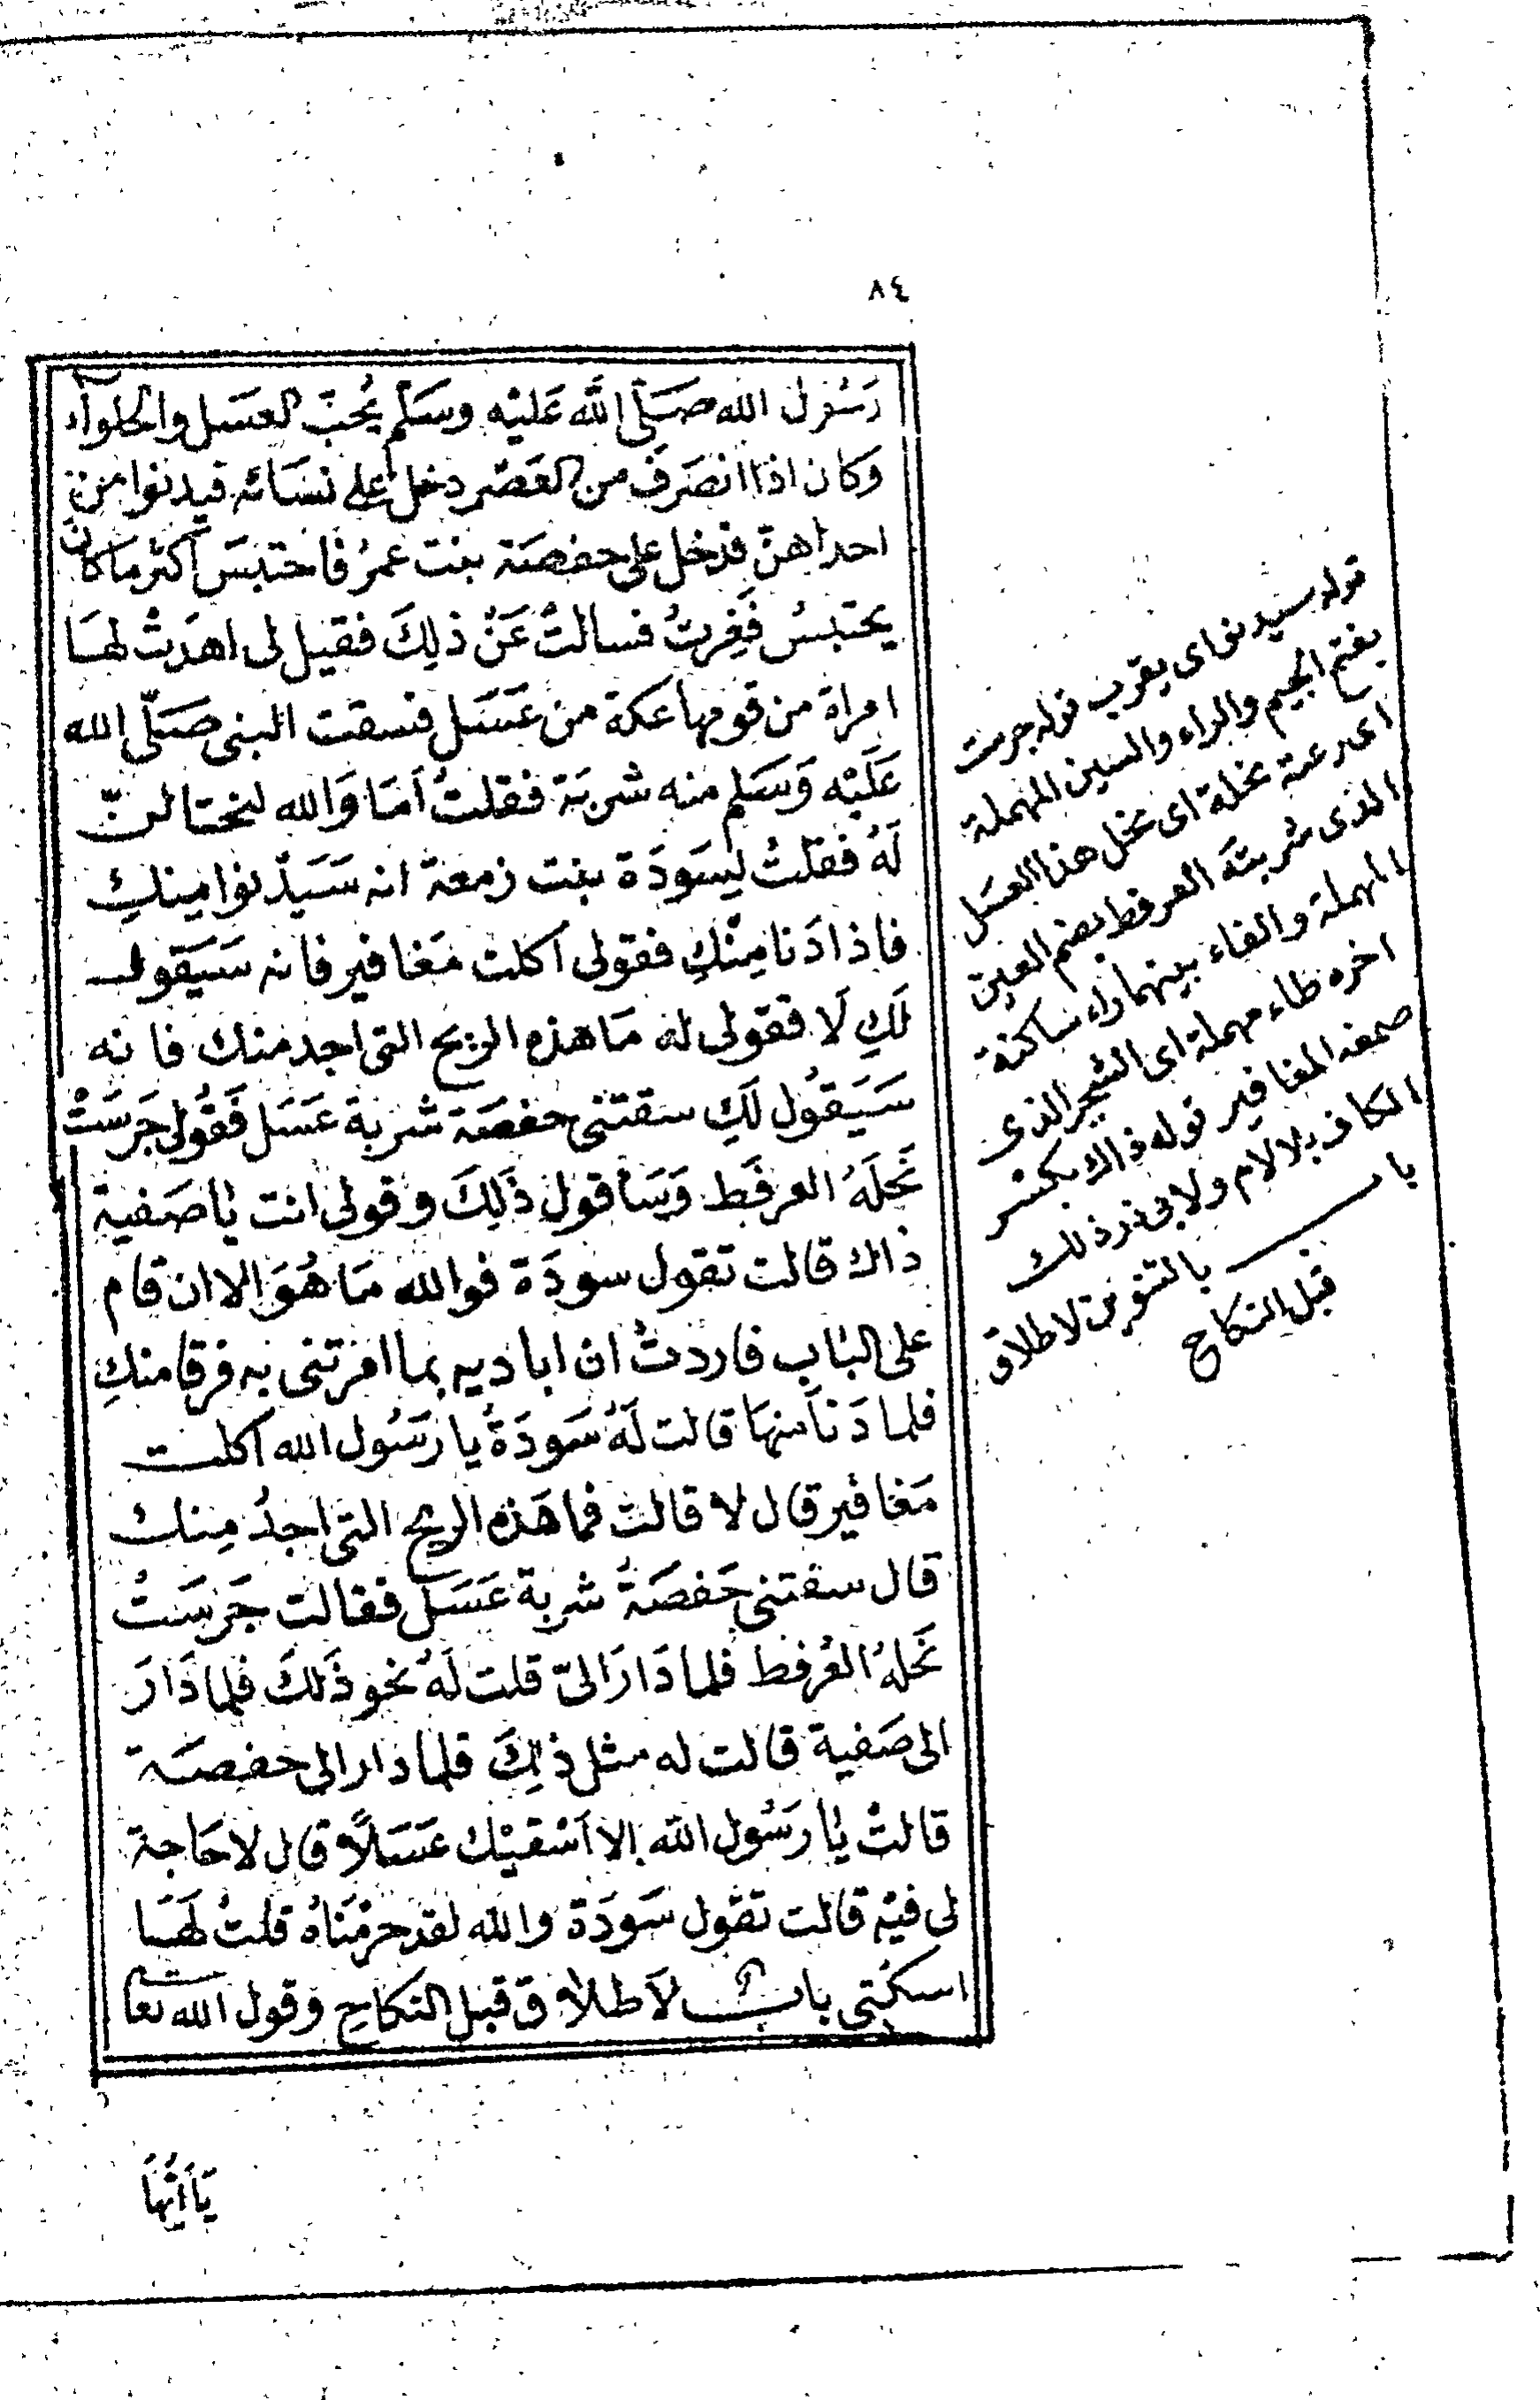 ٨٤
رَسُول الله صَلَّى اللَّه عَليْه وسَلَّم يُحبّ العسَل والحلوآء
وَكان اذا انصَرَفَ من العَصْر دخل على نسَائه فيدنوا من
احداهنّ فدخل على حفصَة بنت عمرُ فاحتبسَ اكثر مَا كان
يحتبسُ فَغِرتُ فسالتُ عَنْ ذلِكَ فقيل لى اهدَتْ لهَا
امراة من قومها عكة من عَسَل فسقت النبى صَلَّى الله
عَلَيْه وَسَلم منه شربَة فقلتُ اَمَا وَالله لنحتالنّ
لَهُ فقلتُ لِسَودَة بنت زمعة انه سَيَدْنوا مِنكِ
فاذا دَنا مِنْكِ فقولى اكلت مَغافير فانه سَيَقول
لَكِ لَا فقولى له مَا هذه الريح التى اجد منك فانه
سَيَقُول لَكِ سقتنى حفصَة شربة عَسَل فَقُولى جَرسَتْ
نَحلهُ العرفَط وَسَأقول ذَلِكَ وقولى انت يا صَفية
ذاك قالت تقول سودَة فوالله مَا هُوَ الا ان قام
على البَاب فاردتُ ان اباديه بما امرتنى به فرقا منكِ
فلما دَنا منهَا قالت لَهُ سَودَةُ يا رَسُول الله اكلت
مَغافير قال لا قالتْ فما هَذه الريح التى اجدُ مِنك
قال سقتنى حَفصَةُ شربة عَسَل فقالت جَرسَتْ
نَحلهُ العُرفط فلما دَارَ الىّ قلت لَهُ نحو ذَلكَ فلما دَارَ
الى صَفية قالت له مثل ذلِكَ فلما دار الى حفصَة
قالتْ يا رَسُول الله الا اَسْقيْك عَسَلاً قال لا حَاجة
لى فيْه قالت تقول سَودَة والله لقد حرمْنَاهُ قلتُ لهَا
اسكتى باب لاَ طلاق قبل النكاحِ وقول الله تعا
يَا اَيُّهَا
قوله سيدنو اى يقرب قوله جرست
بفتح الجيم والراء والسين المهملة
اى رعت نحلة اى نحل هذا العسَل
الذى شربته العرفط بضم العين
المهملة والفاء بينهما راء ساكنة
اخره طاء مهملة اى الشجر الذى
صمغه المغافير قوله ذاك بكسر
الكاف بلا لام ولابى ذر ذلك
باب بالتنوين لا طلاق
قبل النكاح